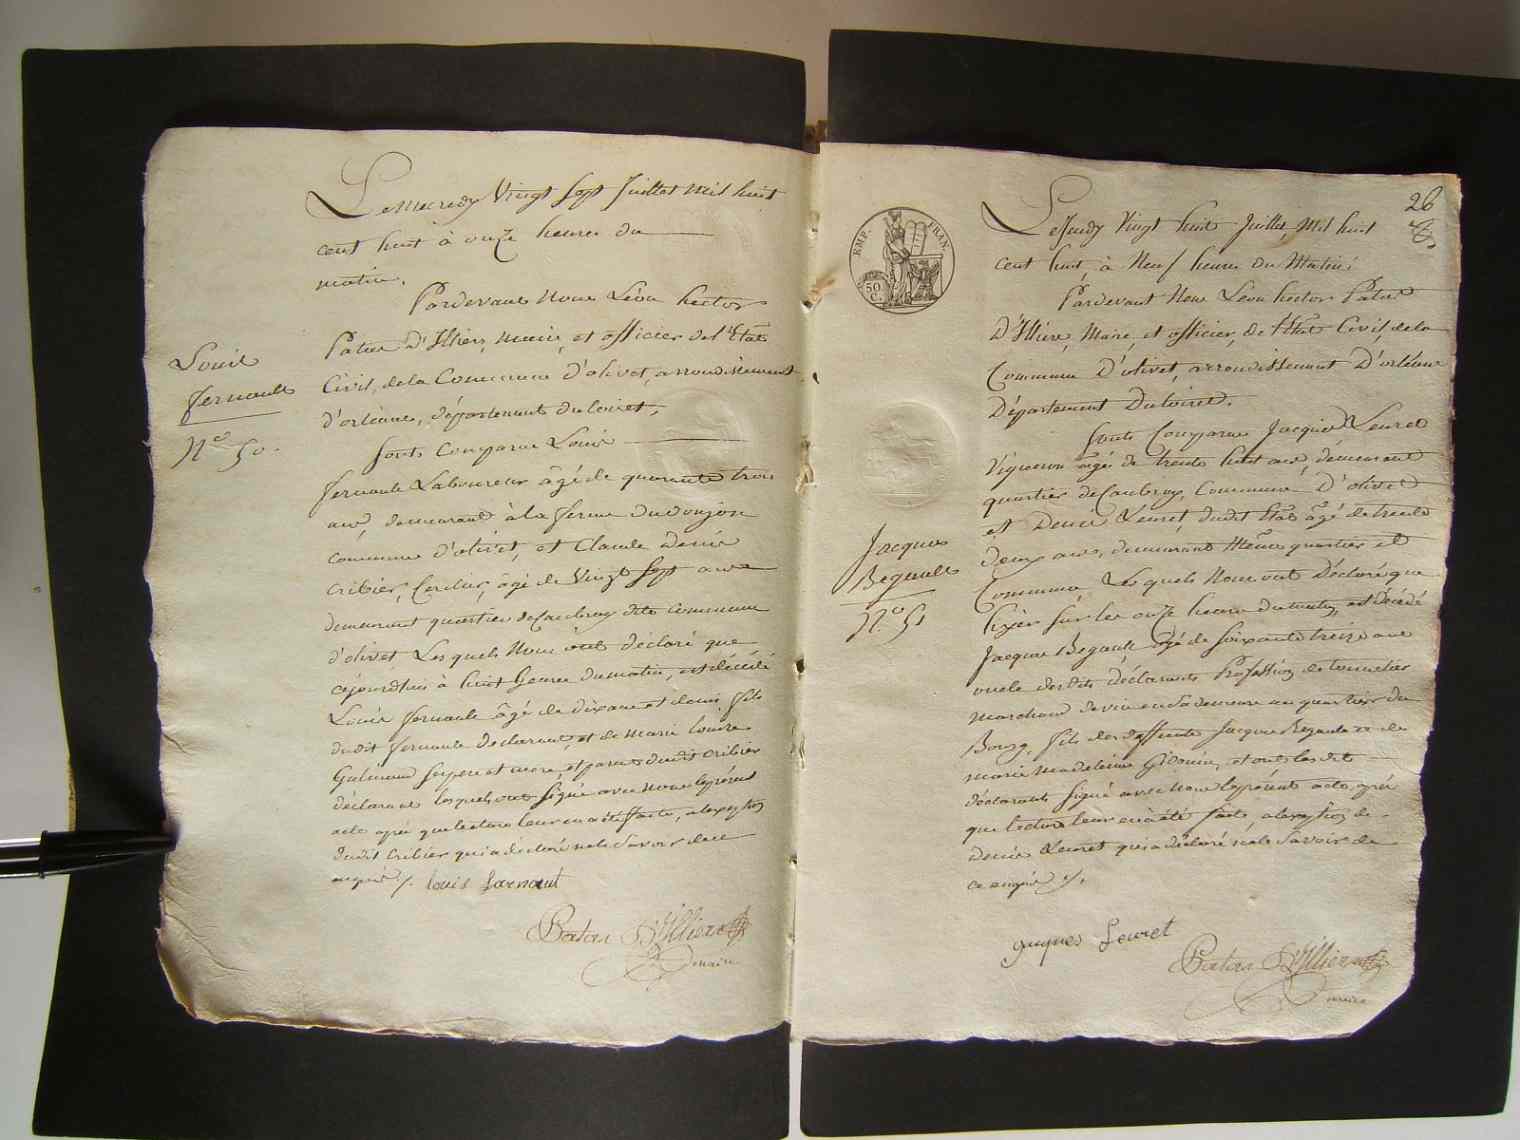 Le Mecredy Vingt Sept Juillet Mil huit
cent huit à onze heures du
matin.
Pardevant Nous Léon hector
Patas d'Illiers, maire, et officier de l'Etat
Civil, de la Commune D'olivet, arrondissement
d'orléans, département du loiret.
Louis
fernault
N.o 50.
sont Comparu Louis
fernault Laboureur âgé de quarante trois
ans, demeurant à la ferme du donjon
commune d'olivet, et Claude Denis
cribier, âgé de Vingt Sept ans
demeurant quartier de Caubray dite commune
d'olivet Lesquels Nous ont déclaré que
cejourdhui à huit heures du matin, est décédé
Louis fernault âgé de dix ans et demi, fils
dudit fernault declarant, et de marie louise
ses pere et mere, et dudit cribier
déclarant lesquels ont signé avec nous le présent
acte après que lecture leur en a été faite, a l'exception
dudit cribier qui a declaré ne le savoir de ce
enquis ./. louis farnault
Patas D'Illiers
maire
26
EMP. FRAN.
50
C.
Le Jeudy Vingt huit Juillet, Mil huit
cent huit, à Neuf heures du Matin:
Pardevant Nous Léon hector Patas
D'Illiers, Maire, et officier, de l'Etat Civil, de la
Commune D'olivet, arrondissement D'orléans
Département Du loiret.
Sont Comparu Jacques Leuret
Vigneron âgé de trente huit ans, demeurant
quartier de Caubray, Commune D'olivet
et Denis Leuret, dudit Etat âgé de trente
deux ans, demeurant même quartier et
Commune, Lesquels Nous ont Déclaré que
hyer sur les onze heures du matin, est décédé
Jacques Begault âgé de soixante treize ans
oncle desdits déclarants Profession de tonnelier
marchand de vin en sa demeure au quartier du
Bourg, fils des deffunts Jacques Begault et de
marie madeleine, et ont lesdits
déclarants signé avec nous le présent acte, après
que lecture leur en a été faite, a l'exception de
Denis Leuret qui a déclaré ne le savoir de
ce enquis ./.
Jacques
Begault
N.o 51
jaques Leuret
Patas D'Illiers
maire